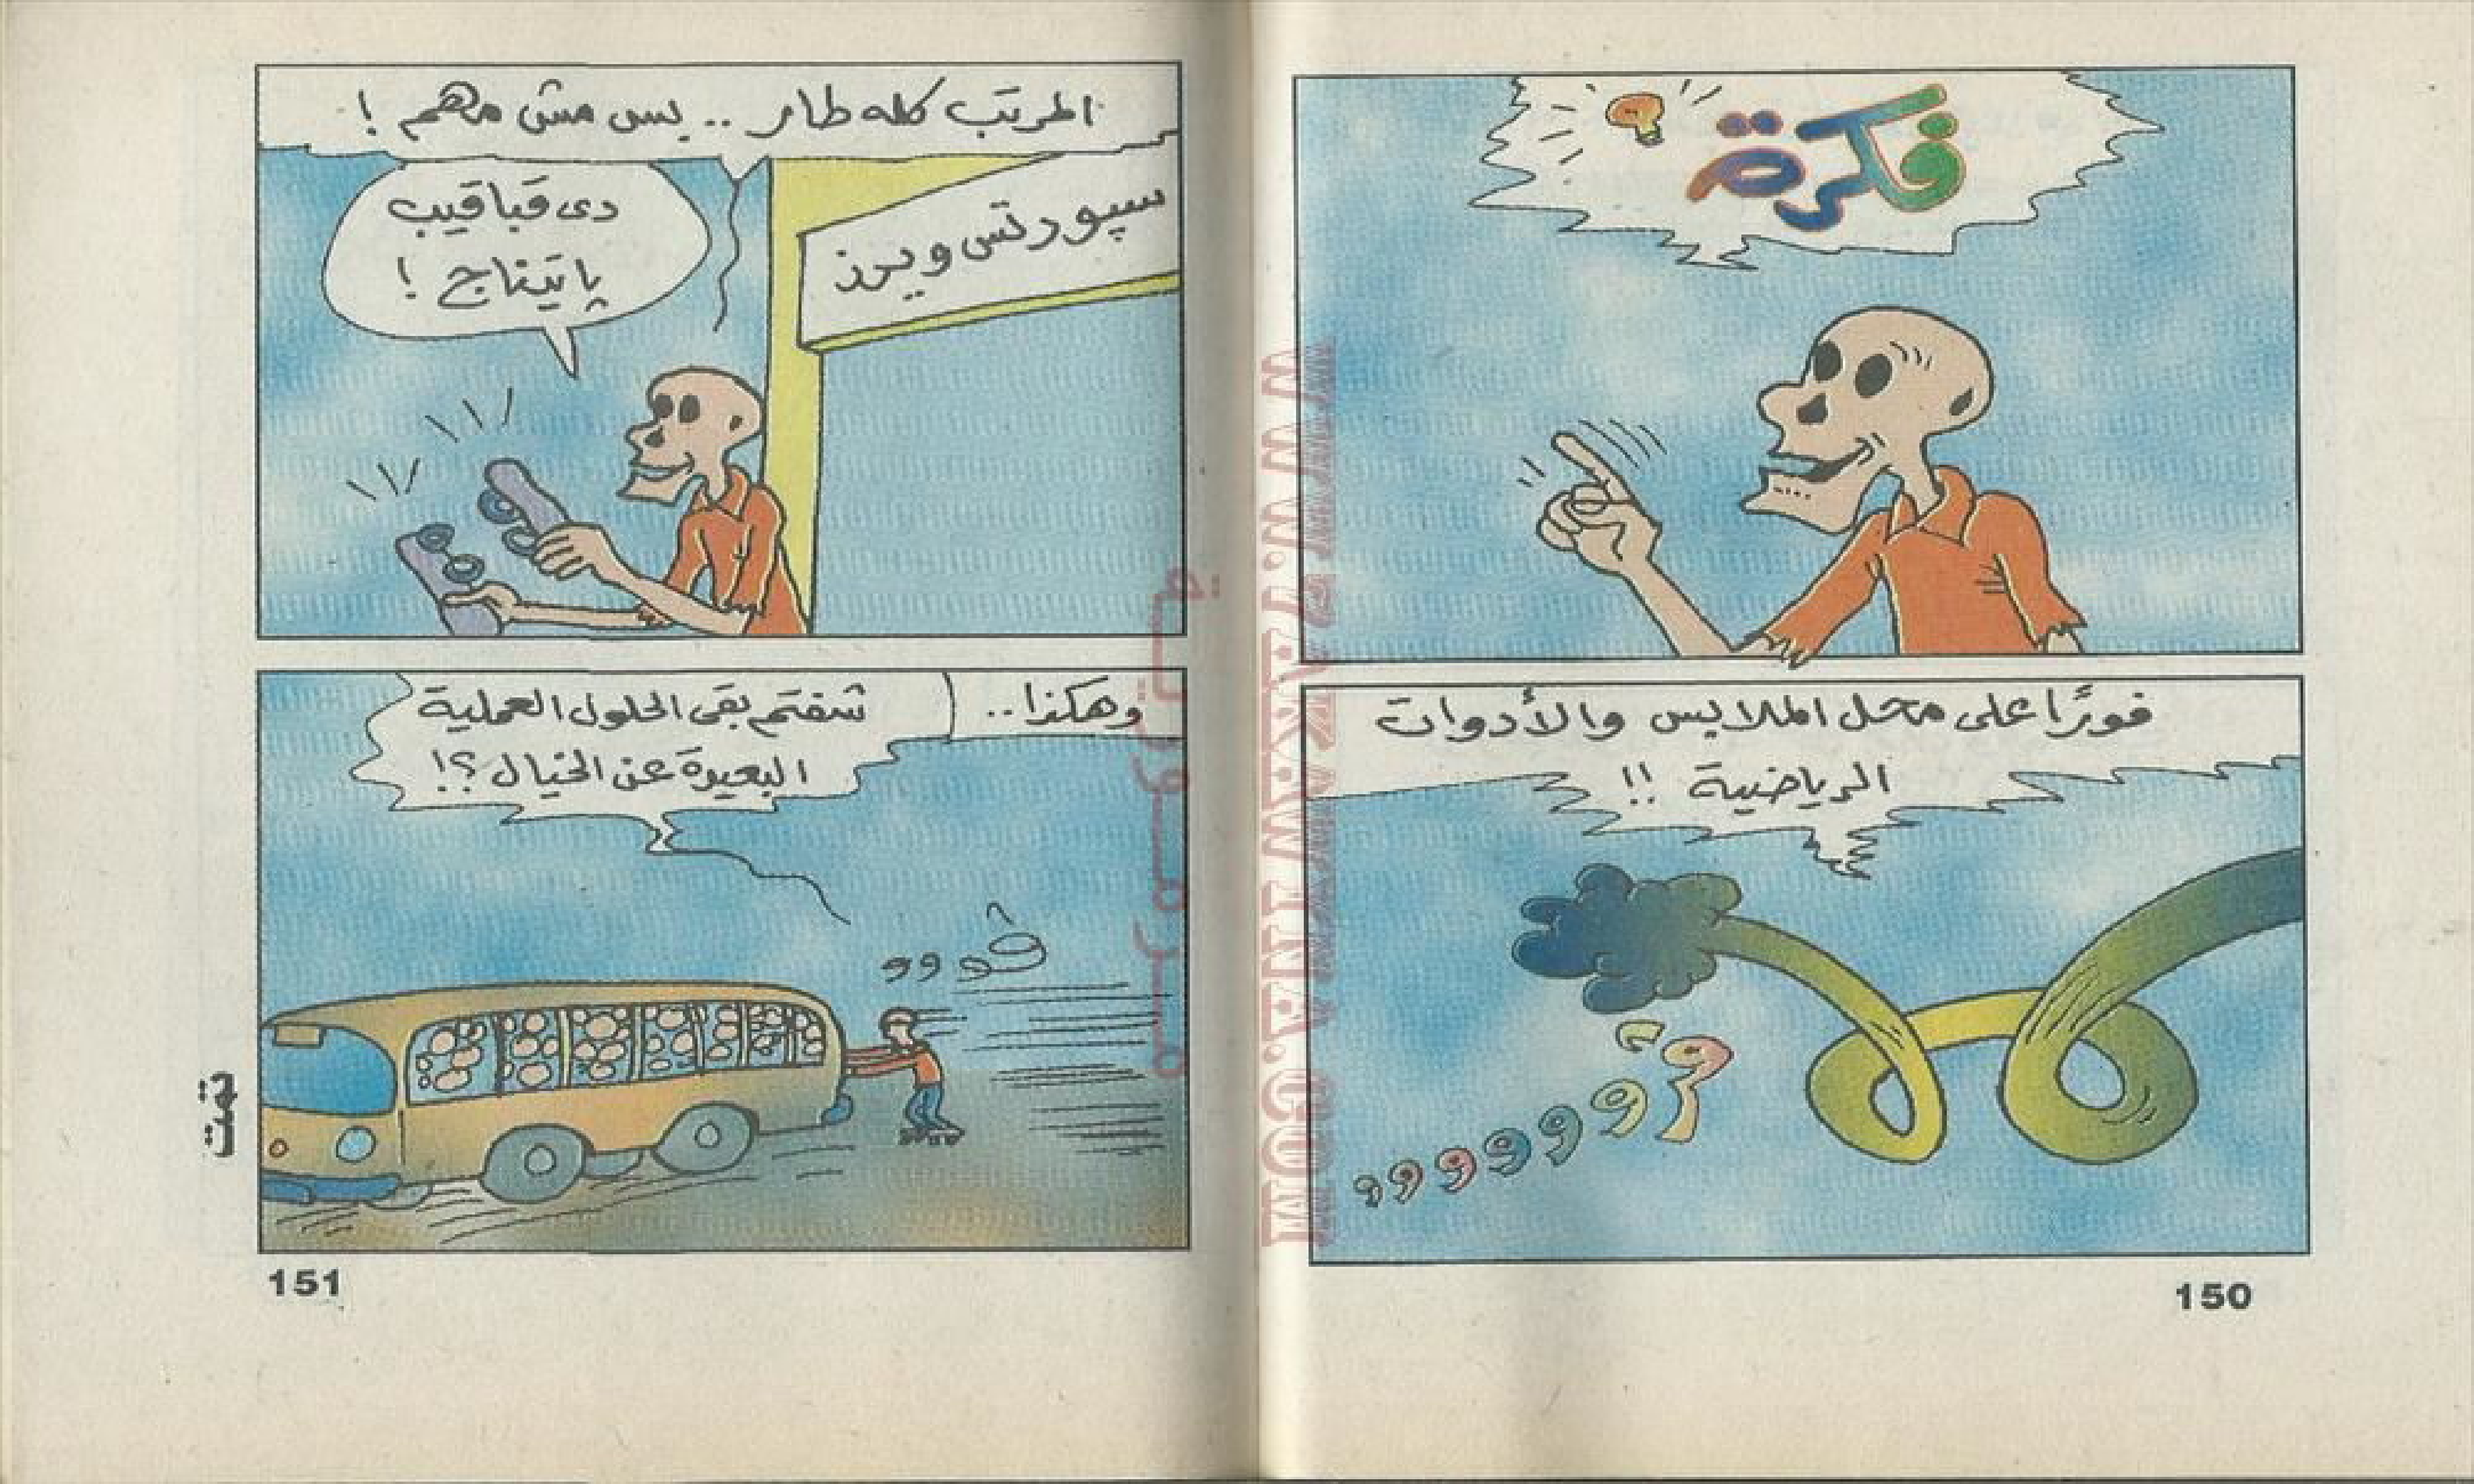 فكرة
فورًا على محل الملابس والأدوات
الرياضية !!
150
المرتب كله طار .. بس مش مهم !
سپورتس ويرز
دى قباقيب
پاتيناج !
وهكذا..
شفتم بقى الحلول العملية
البعيدة عن الخيال ؟!
ڤوووو
تمت
151